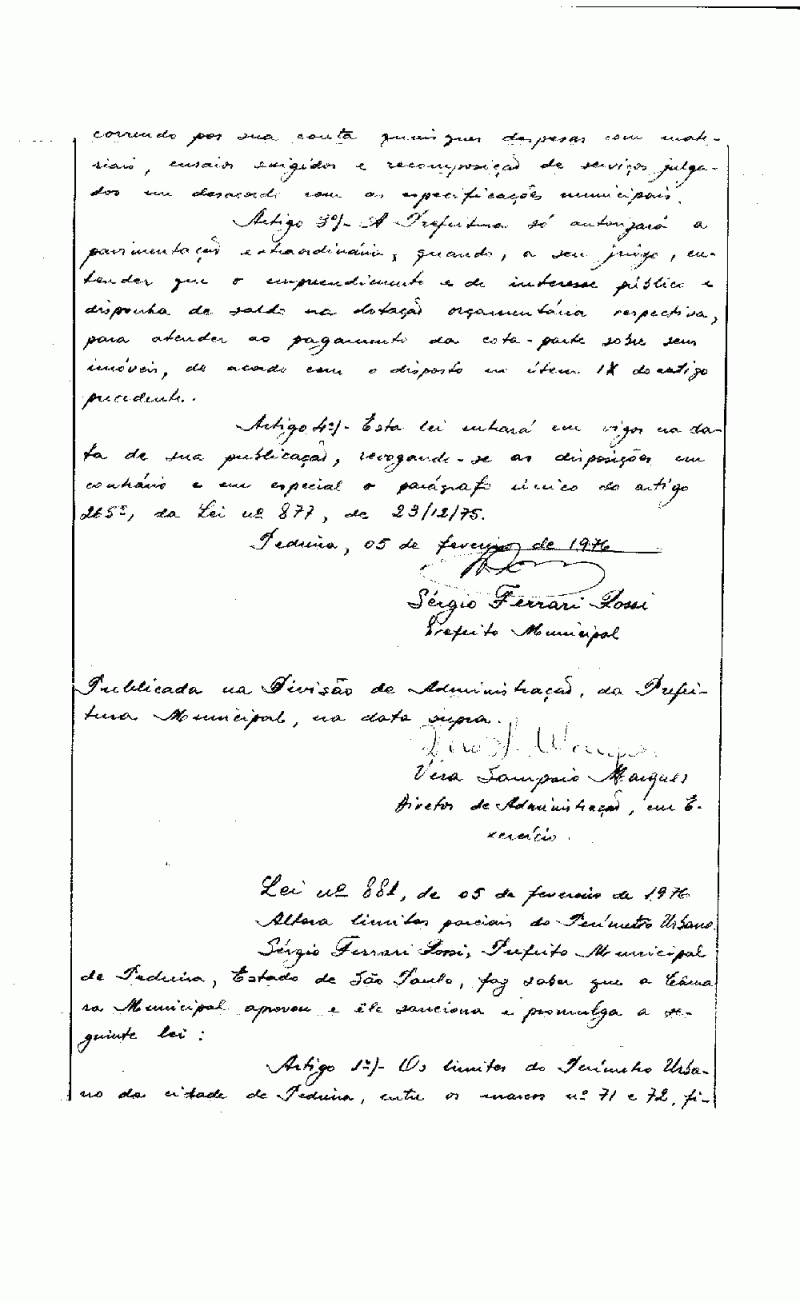 correndo por sua conta quaisquer despesas com mate-
riais, ensaios exigidos e recomposição de serviços julga-
dos em desacordo com as especificações municipais.
Artigo 3º)- A Prefeitura só autorizará a
pavimentação extraordinária, quando, a seu juízo, en-
tender que o empreendimento e de interesse público e
disponha de saldo na dotação orçamentária respectiva,
para atender ao pagamento da cota-parte sobre seus
imóveis, de acordo com o disposto no ítem IX do artigo
precedente.
Artigo 4º)- Esta lei entrará em vigor na da-
ta de sua publicação, revogando-se as disposições em
contrário e em especial o parágrafo único do artigo
265º, da Lei nº 877, de 23/12/75.
Pedreira, 05 de fevereiro de 1976
Sérgio Ferrari Rossi
Prefeito Municipal
Publicada na Divisão de Administração, da Prefei-
tura Municipal, na data supra.
Vera Sampaio Marques
Diretor de Administração, em E-
xercício.
Lei nº 881, de 05 de fevereiro de 1976
Altera limites parciais do Perímetro Urbano.
Sérgio Ferrari Rossi, Prefeito Municipal
de Pedreira, Estado de São Paulo, faz saber que a Câma
ra Municipal aprovou e êle sanciona e promulga a se-
guinte lei:
Artigo 1º)- Os limites do Perímetro Urba-
no da cidade de Pedreira, entre os marcos nº 71 e 72, fi-